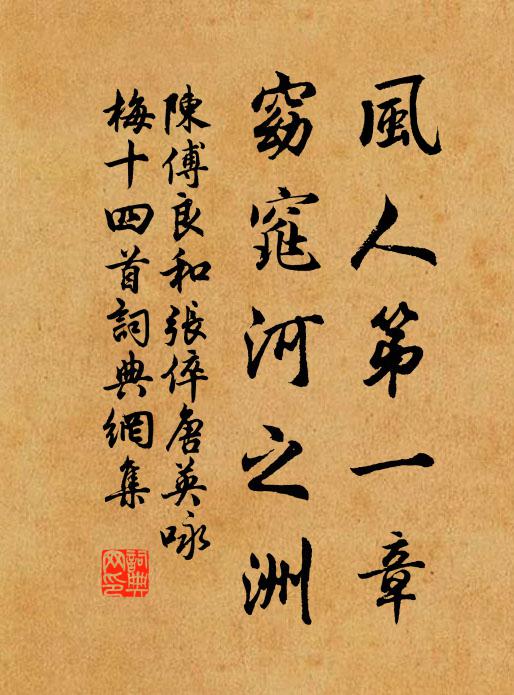 風人第一章
窈窕河之洲
陳傅良和張倅唐英咏
梅十四首詞典網集
詞典
网印